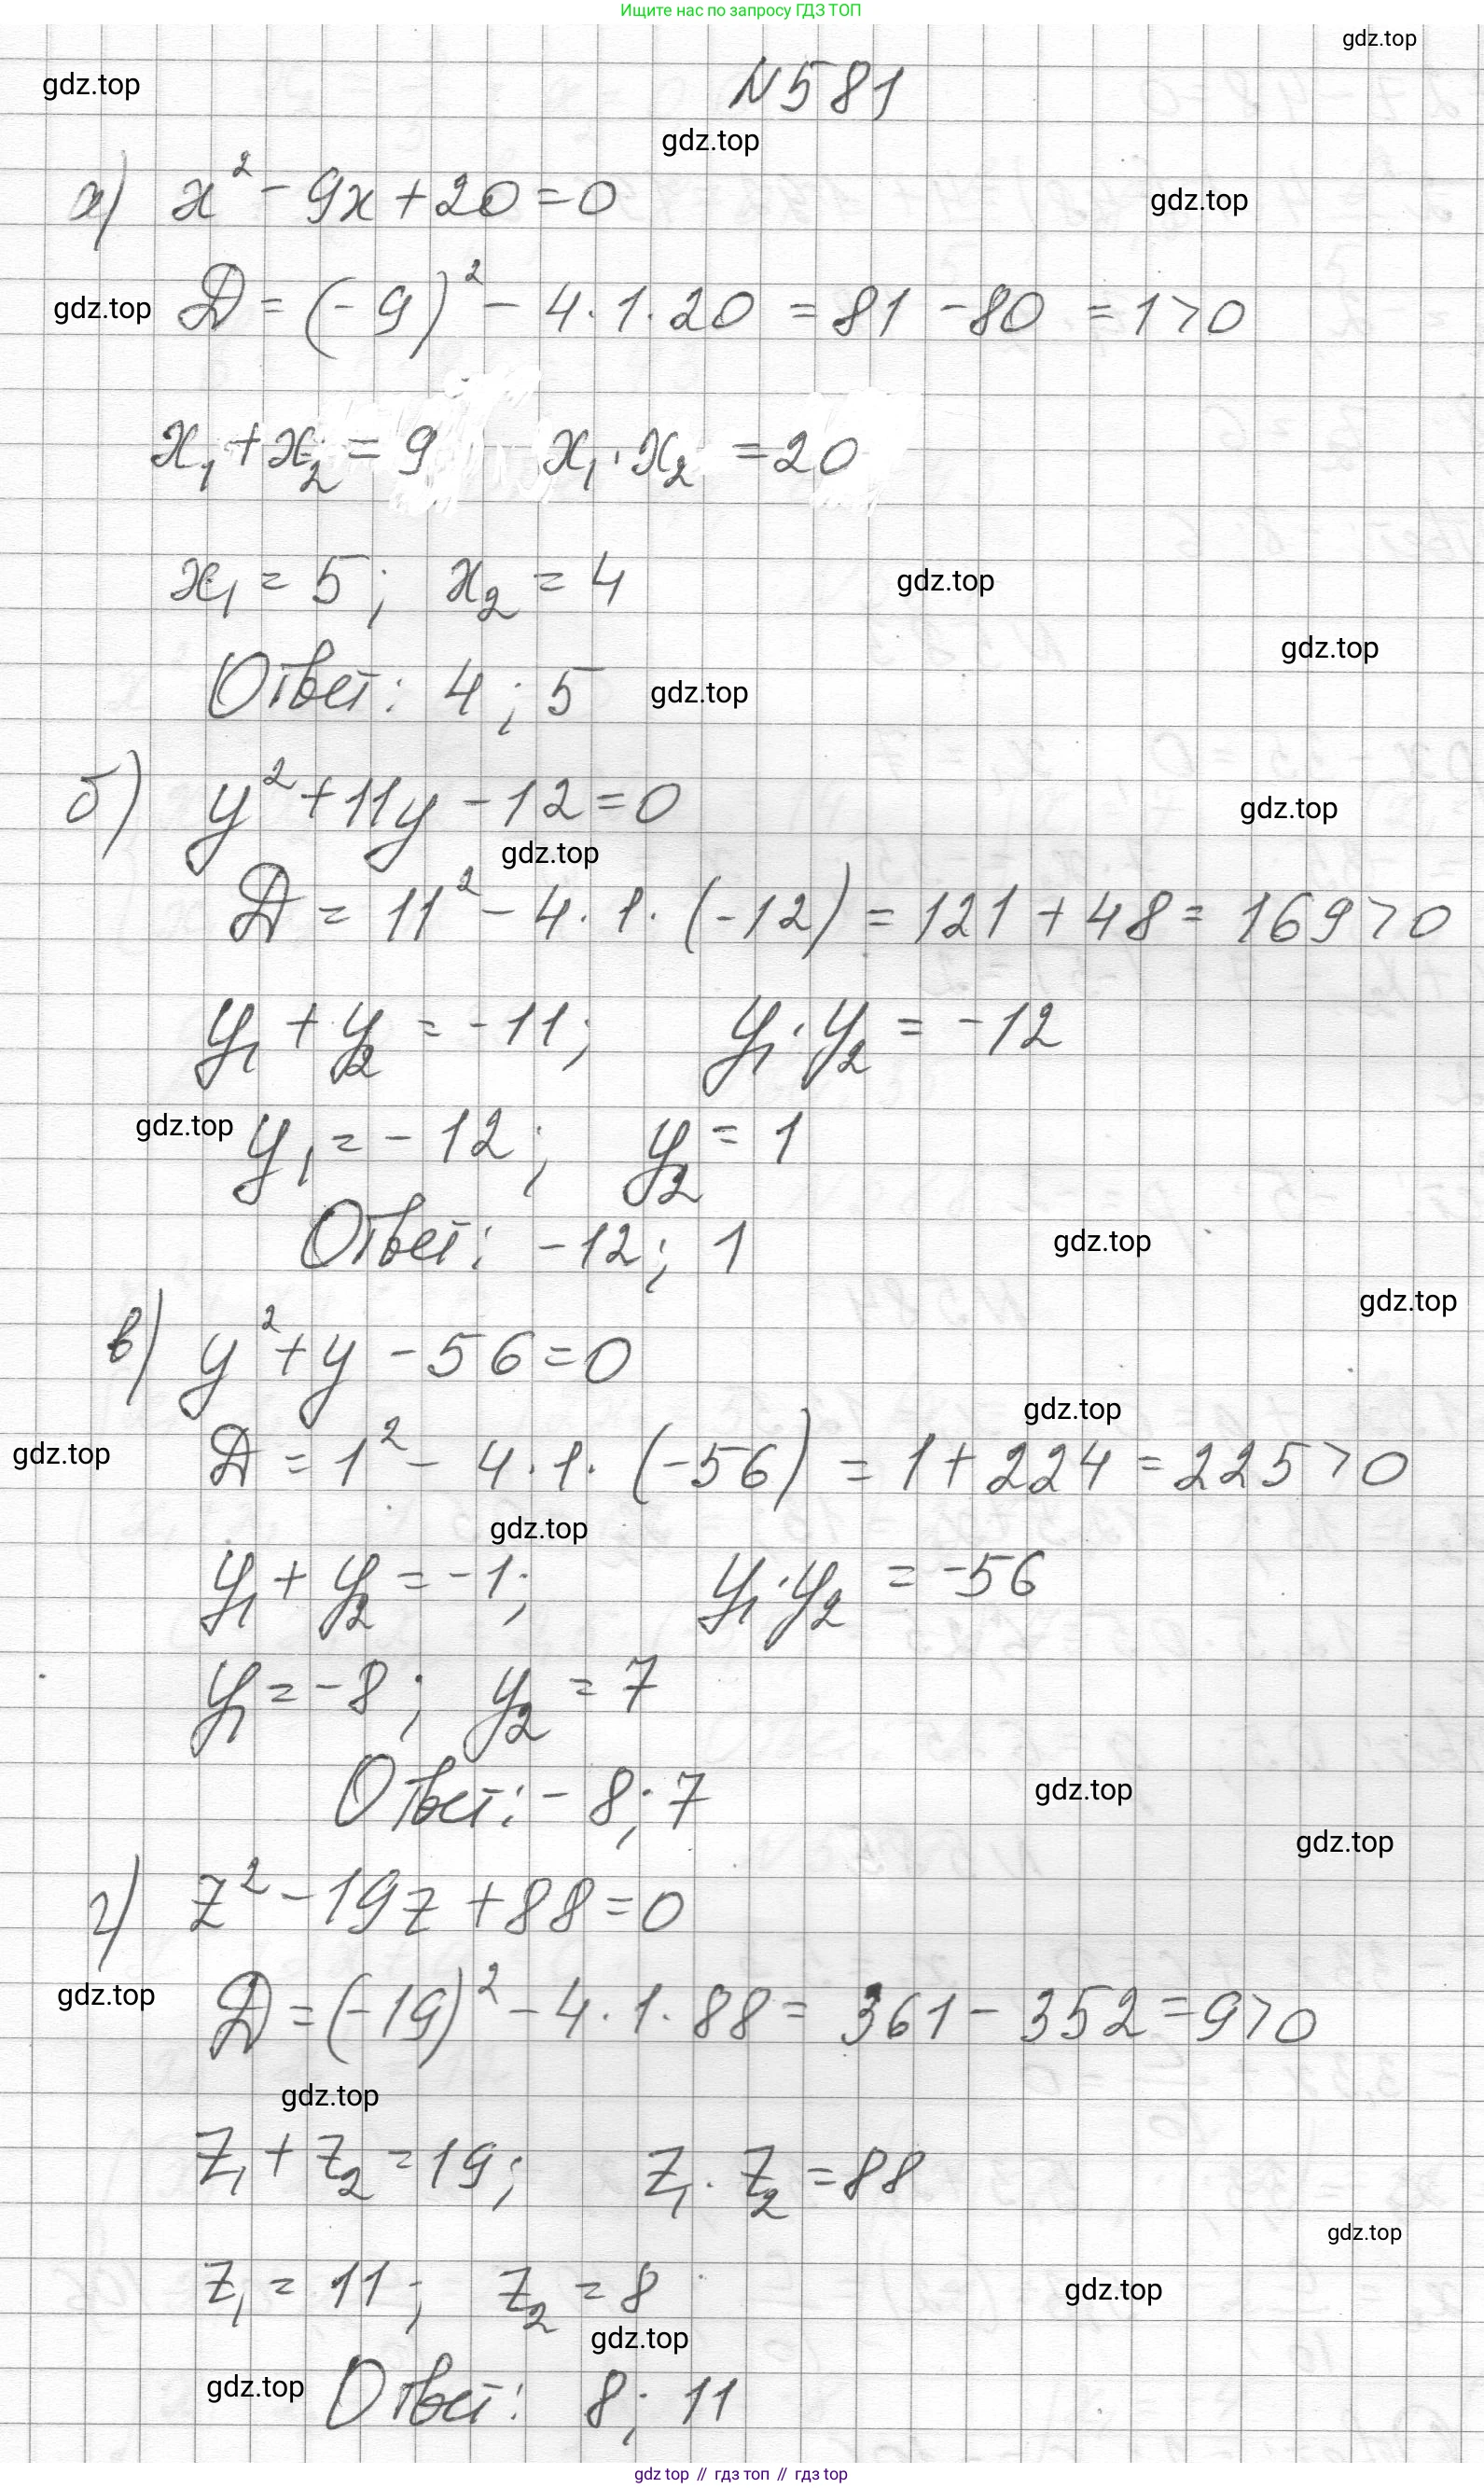 Ищите нас по запросу ГДЗ ТОП
gdz.top
gdz.top
N581
gdz.top
а) x² - 9x + 20 = 0
gdz.top
gdz.top
D = (-9)² - 4·1·20 = 81 - 80 = 1 > 0
x₁ + x₂ = 9 x₁·x₂ = 20
x₁ = 5; x₂ = 4
gdz.top
gdz.top
Ответ: 4; 5
gdz.top
б) y² + 11y - 12 = 0
gdz.top
gdz.top
D = 11² - 4·1·(-12) = 121 + 48 = 169 > 0
y₁ + y₂ = -11; y₁·y₂ = -12
gdz.top
y₁ = -12; y₂ = 1
Ответ: -12; 1
gdz.top
gdz.top
в) y² + y - 56 = 0
gdz.top
gdz.top
D = 1² - 4·1·(-56) = 1 + 224 = 225 > 0
gdz.top
y₁ + y₂ = -1; y₁·y₂ = -56
y₁ = -8; y₂ = 7
Ответ: -8; 7
gdz.top
gdz.top
г) z² - 19z + 88 = 0
gdz.top
D = (-19)² - 4·1·88 = 361 - 352 = 9 > 0
gdz.top
z₁ + z₂ = 19; z₁·z₂ = 88
gdz.top
z₁ = 11; z₂ = 8
gdz.top
gdz.top
gdz.top
Ответ: 8; 11
gdz top // гдз топ // гдз top